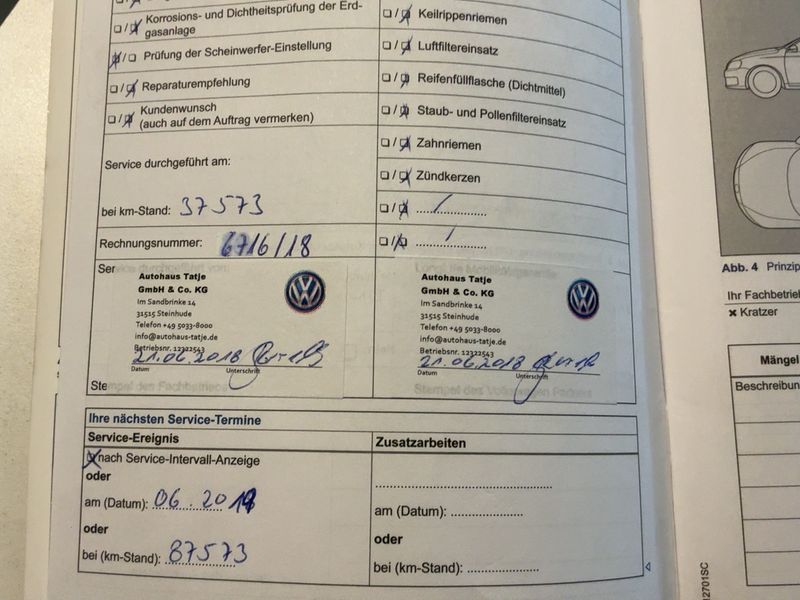 ❏/❏ Korrosions- und Dichtheitsprüfung der Erd-
gasanlage
❏/❏ Prüfung der Scheinwerfer-Einstellung
❏/❏ Reparaturempfehlung
❏/❏ Kundenwunsch
(auch auf dem Auftrag vermerken)
Service durchgeführt am:
bei km-Stand: 37573
Rechnungsnummer: 6716/18
❏/❏ Keilrippenriemen
❏/❏ Luftfiltereinsatz
❏/❏ Reifenfüllflasche (Dichtmittel)
❏/❏ Staub- und Pollenfiltereinsatz
❏/❏ Zahnriemen
❏/❏ Zündkerzen
❏/❏ ................
❏/❏ ................
Ser
Autohaus Tatje
GmbH & Co. KG
Im Sandbrinke 14
31515 Steinhude
Telefon +49 5033-8000
info@autohaus-tatje.de
Betriebsnr. 12322543
21.06.2018
Datum Unterschrift
Ste
Autohaus Tatje
GmbH & Co. KG
Im Sandbrinke 14
31515 Steinhude
Telefon +49 5033-8000
info@autohaus-tatje.de
Betriebsnr. 12322543
21.06.2018
Datum Unterschrift
Stempel des Volkswagen Partners
Ihre nächsten Service-Termine
Service-Ereignis
nach Service-Intervall-Anzeige
oder
am (Datum): 06.20
oder
bei (km-Stand): 87573
Zusatzarbeiten
................
am (Datum): ................
oder
bei (km-Stand): ................
Abb. 4 Prinzip
Ihr Fachbetrieb
× Kratzer
Mängel
Beschreibun
12701SC